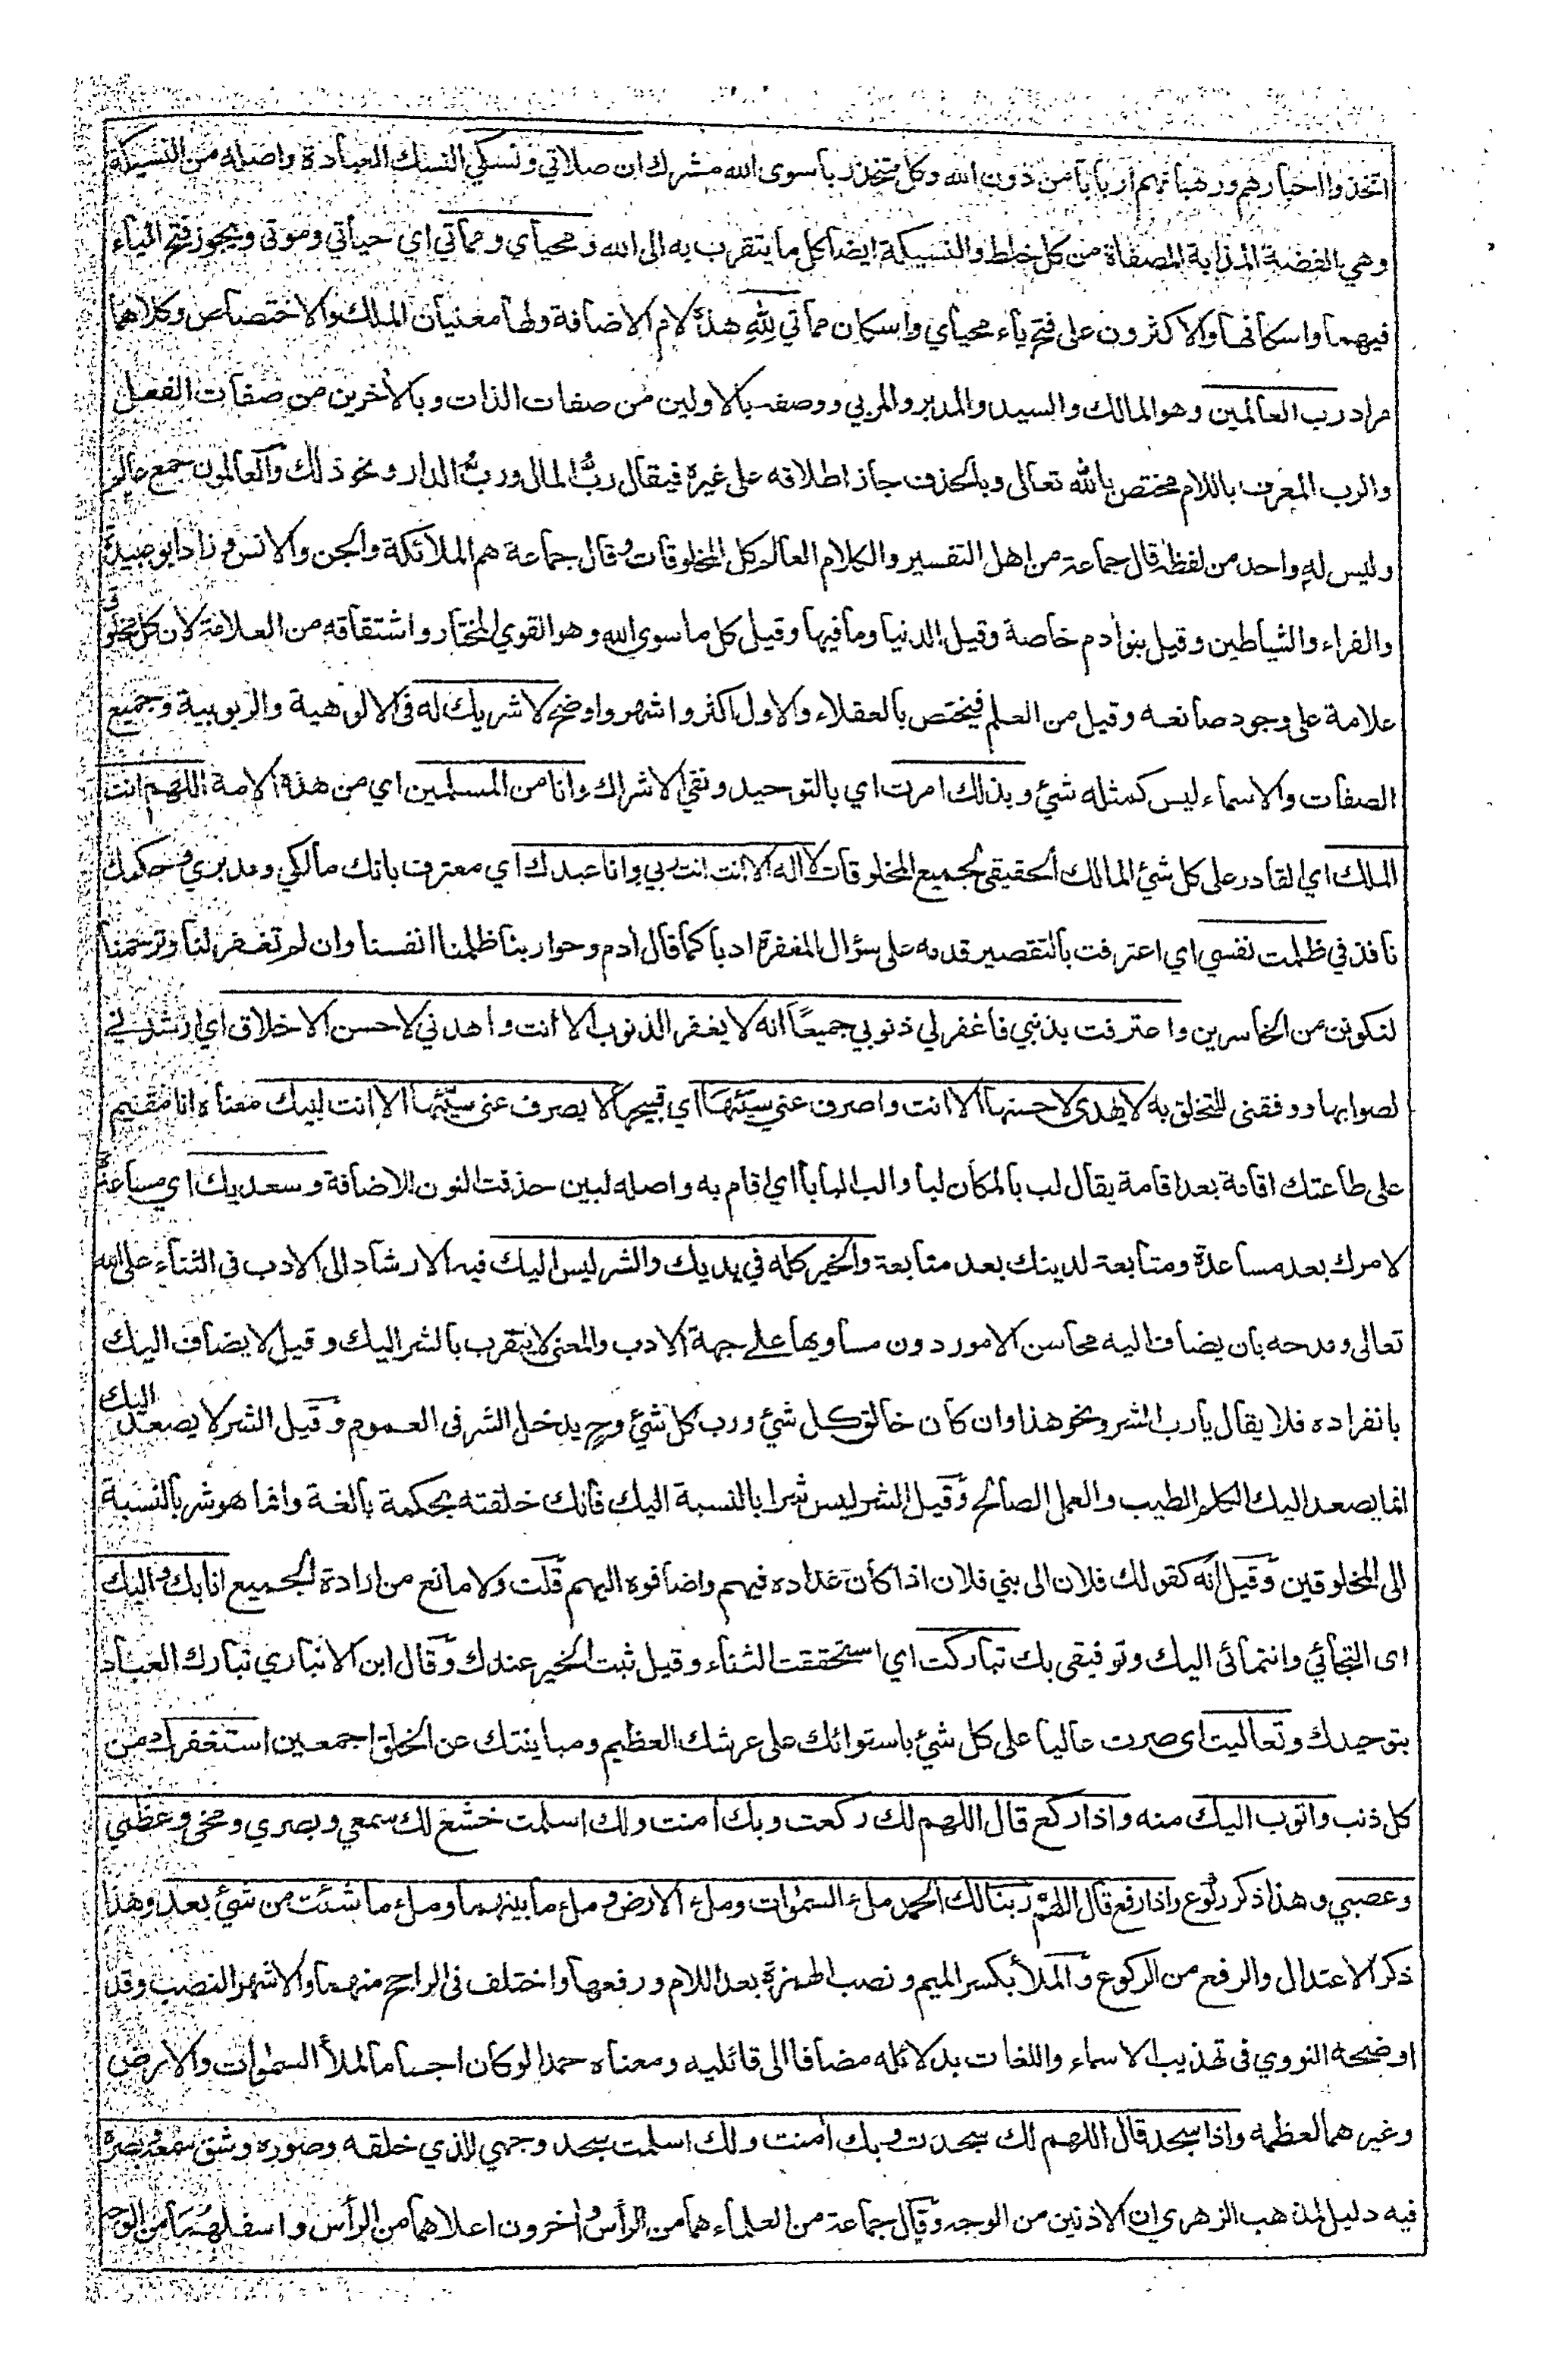 اتخذوا احبارهم ورهبانهم اربابا من دون الله وكل متخذ ربا سوى الله مشرك ان صلاتي ونسكي النسك العبادة واصله من النسيكة
وهي الفضة المذابة المصفاة من كل خلط والنسيكة ايضا كل ما يتقرب به الى الله ومحياي ومماتي اي حياتي وموتي ويجوز فتح الياء
فيهما واسكانها والاكثرون على فتح ياء محياي واسكان مماتي لِلّٰهِ هذه لام الاضافة ولها معنيان الملك والاختصاص وكلاهما
مراد رب العالمين وهو المالك والسيد والمدبر والمربي ووصفه بالاولين من صفات الذات وبالاخرين من صفات الفعل
والرب المعرف باللام مختص بالله تعالى وبالحذف جاز اطلاقه على غيره فيقال ربُّ المال وربُّ الدار ونحو ذلك والعالمون جمع عالم
وليس له واحد من لفظه قال جماعة من اهل التفسير والكلام العالم كل المخلوقات وقال جماعة هم الملائكة والجن والانس وزاد ابو عبيدة
والفراء والشياطين وقيل بنو ادم خاصة وقيل الدنيا وما فيها وقيل كل ما سوى الله وهو القوي المختار واشتقاقه من العلامة لان كل مخلوق
علامة على وجود صانعه وقيل من العلم فيختص بالعقلاء والاول اكثر واشهر واوضح لا شريك له في الالوهية والربوبية وجميع
الصفات والاسماء ليس كمثله شئ وبذلك امرت اي بالتوحيد ونفي الاشراك وانا من المسلمين اي من هذه الامة اللهم انت
الملك اي القادر على كل شئ المالك الحقيقى لجميع المخلوقات لا اله الا انت انت ربي وانا عبدك اي معترف بانك مالكي ومدبري وحكمك
نافذ في ظلمت نفسي اي اعترفت بالتقصير قدمه على سؤال المغفرة ادبا كما قال ادم وحوا ربنا ظلمنا انفسنا وان لم تغفر لنا وترحمنا
لنكونن من الخاسرين واعترفت بذنبي فاغفر لي ذنوبي جميعًا انه لا يغفر الذنوب الا انت واهدني لاحسن الاخلاق اي ارشدني
لصوابها ووفقنى للتخلق به لا يهدى لاحسنها الا انت واصرف عني سيّئها اي قبيحها لا يصرف عنى سيّئها الا انت لبيك معناه انا مقيم
على طاعتك اقامة بعد اقامة يقال لب بالمكان لبا والب البابا اي اقام به واصله لبين حذفت النون للاضافة وسعديك اي مساعدة
لامرك بعد مساعدة ومتابعة لدينك بعد متابعة والخير كله في يديك والشر ليس اليك فيه الارشاد الى الادب في الثناء على الله
تعالى ومدحه بان يضاف اليه محاسن الامور دون مساويها على جهة الادب والمعنى لا يتقرب بالشر اليك وقيل لا يضاف اليك
بانفراده فلا يقال يا رب الشر ونحو هذا وان كان خالق كل شئ ورب كل شئ وح يدخل الشر فى العموم وقيل الشر لا يصعد اليك
انما يصعد اليك الكلم الطيب والعمل الصالح وقيل الشر ليس شرا بالنسبة اليك فانك خلقته بحكمة بالغة وانما هو شر بالنسبة
الى المخلوقين وقيل انه كقولك فلان الى بني فلان اذا كان عداده فيهم واضافوه اليهم قلت ولا مانع من ارادة الجميع انا بك واليك
اى التجائي وانتمائى اليك وتوفيقى بك تباركت اي استحققت الثناء وقيل ثبت الخير عندك وقال ابن الانباري تبارك العباد
بتوحيدك وتعاليت اى صرت عاليا على كل شئ باستوائك على عرشك العظيم ومباينتك عن الخلق اجمعين استغفرك من
كل ذنب واتوب اليك منه واذا ركع قال اللهم لك ركعت وبك امنت ولك اسلمت خشع لك سمعي وبصري ومخى وعظمي
وعصبي وهذا ذكر ركوع واذا رفع قال اللهم ربنا لك الحمد ملء السموات وملء الارض وملء ما بينهما وملء ما شئت من شئ بعد وهذا
ذكر الاعتدال والرفع من الركوع والملأ بكسر الميم ونصب الهمزة بعد اللام ورفعها واختلف فى الراجح منهما والاشهر النصب وقد
اوضحه النووي فى تهذيب الاسماء واللغات بدلائله مضافا الى قائليه ومعناه حمدا لو كان اجساما لملأ السموات والارض
وغيرهما لعظمه واذا سجد قال اللهم لك سجدت وبك امنت ولك اسلمت سجد وجهي للذي خلقه وصوره وشق سمعه وبصره
فيه دليل لمذهب الزهري ان الاذنين من الوجه وقال جماعة من العلماء هما من الرأس واخرون اعلاهما من الرأس واسفلهما من الوجه